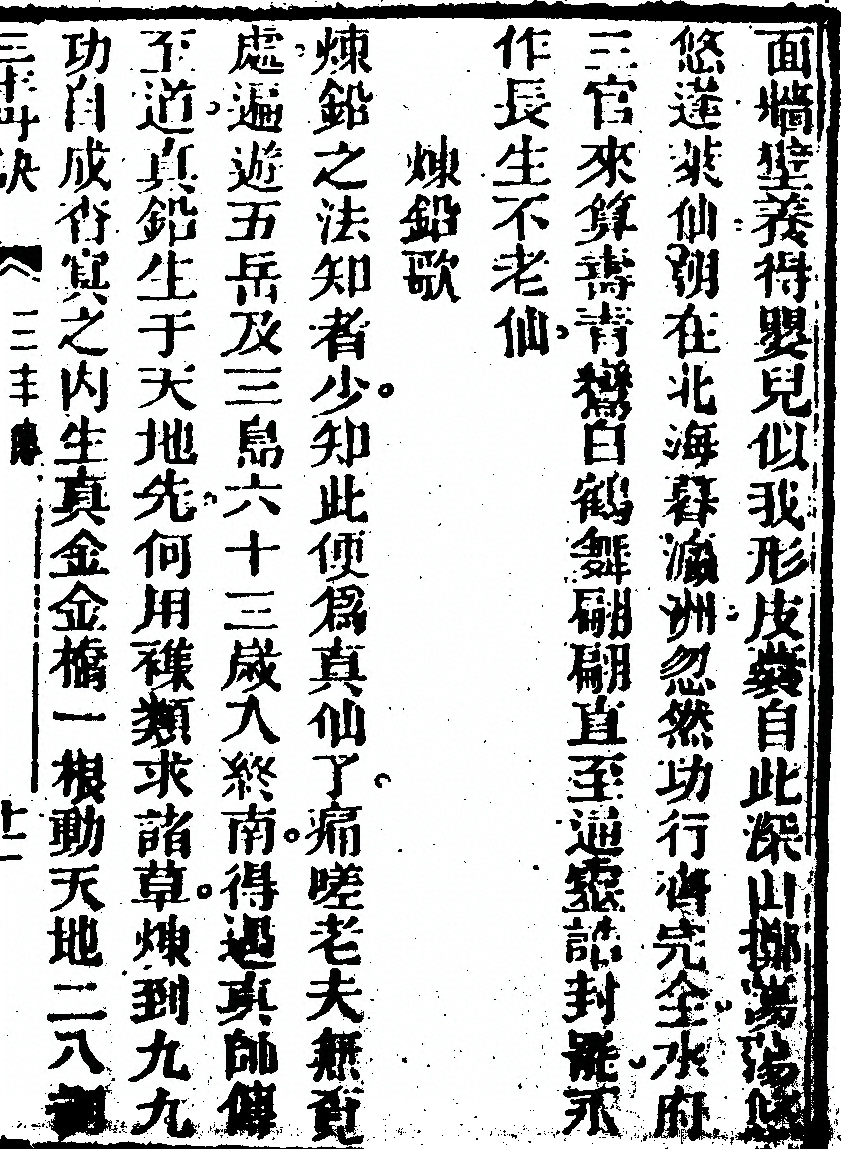 面牆壁養得嬰兒似我形皮囊自此深山擲蕩蕩悠
悠蓬萊仙朝在北海暮瀛洲忽然功行濟完全水府
三官來算壽青鸞白鶴舞翩翩直至通靈誥封罷永
作長生不老仙
煉鉛歌
煉鉛之法知者少知此便爲真仙了痛嗟老夫無覓
處遍遊五岳及三島六十三歲入終南得遇真師傳
至道真鉛生于天地先何用襍類求諸草煉到九九
功自成杳冥之內生真金金橋一根動天地二八
三丰丹訣
三丰傳
十二